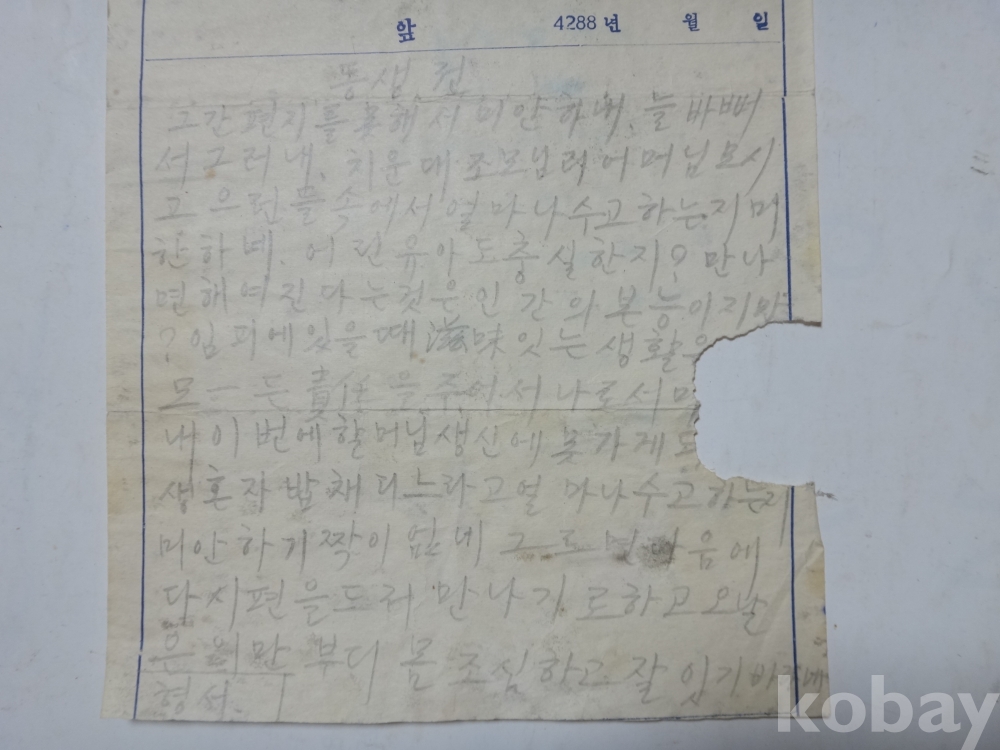 앞 4288년 월 일
동생 전
그간 편지를 못해서 미안하네. 늘 바빠
서 그러네. 치운데 조모님과 어머님 모시
고 으런들 속에서 얼마나 수고하는지 미
안하네. 어린 유아도 충실한지? 만나
면 해여진다는 것은 인간의 본능이지만
? 임피에 있을 때 滋味 잇는 생활
모ー든 責任을 주어서 나로서
내 이번에 할머님 생신에 못가게
생 혼자 발채 디느라고 얼마나 수고하는지
미안하기 짝이 없네 음에
다시 편을 도러 만나기로 하고 오날
은 이만 부디 몸 조심하고 잘 있기 바라네
형서.
kobay